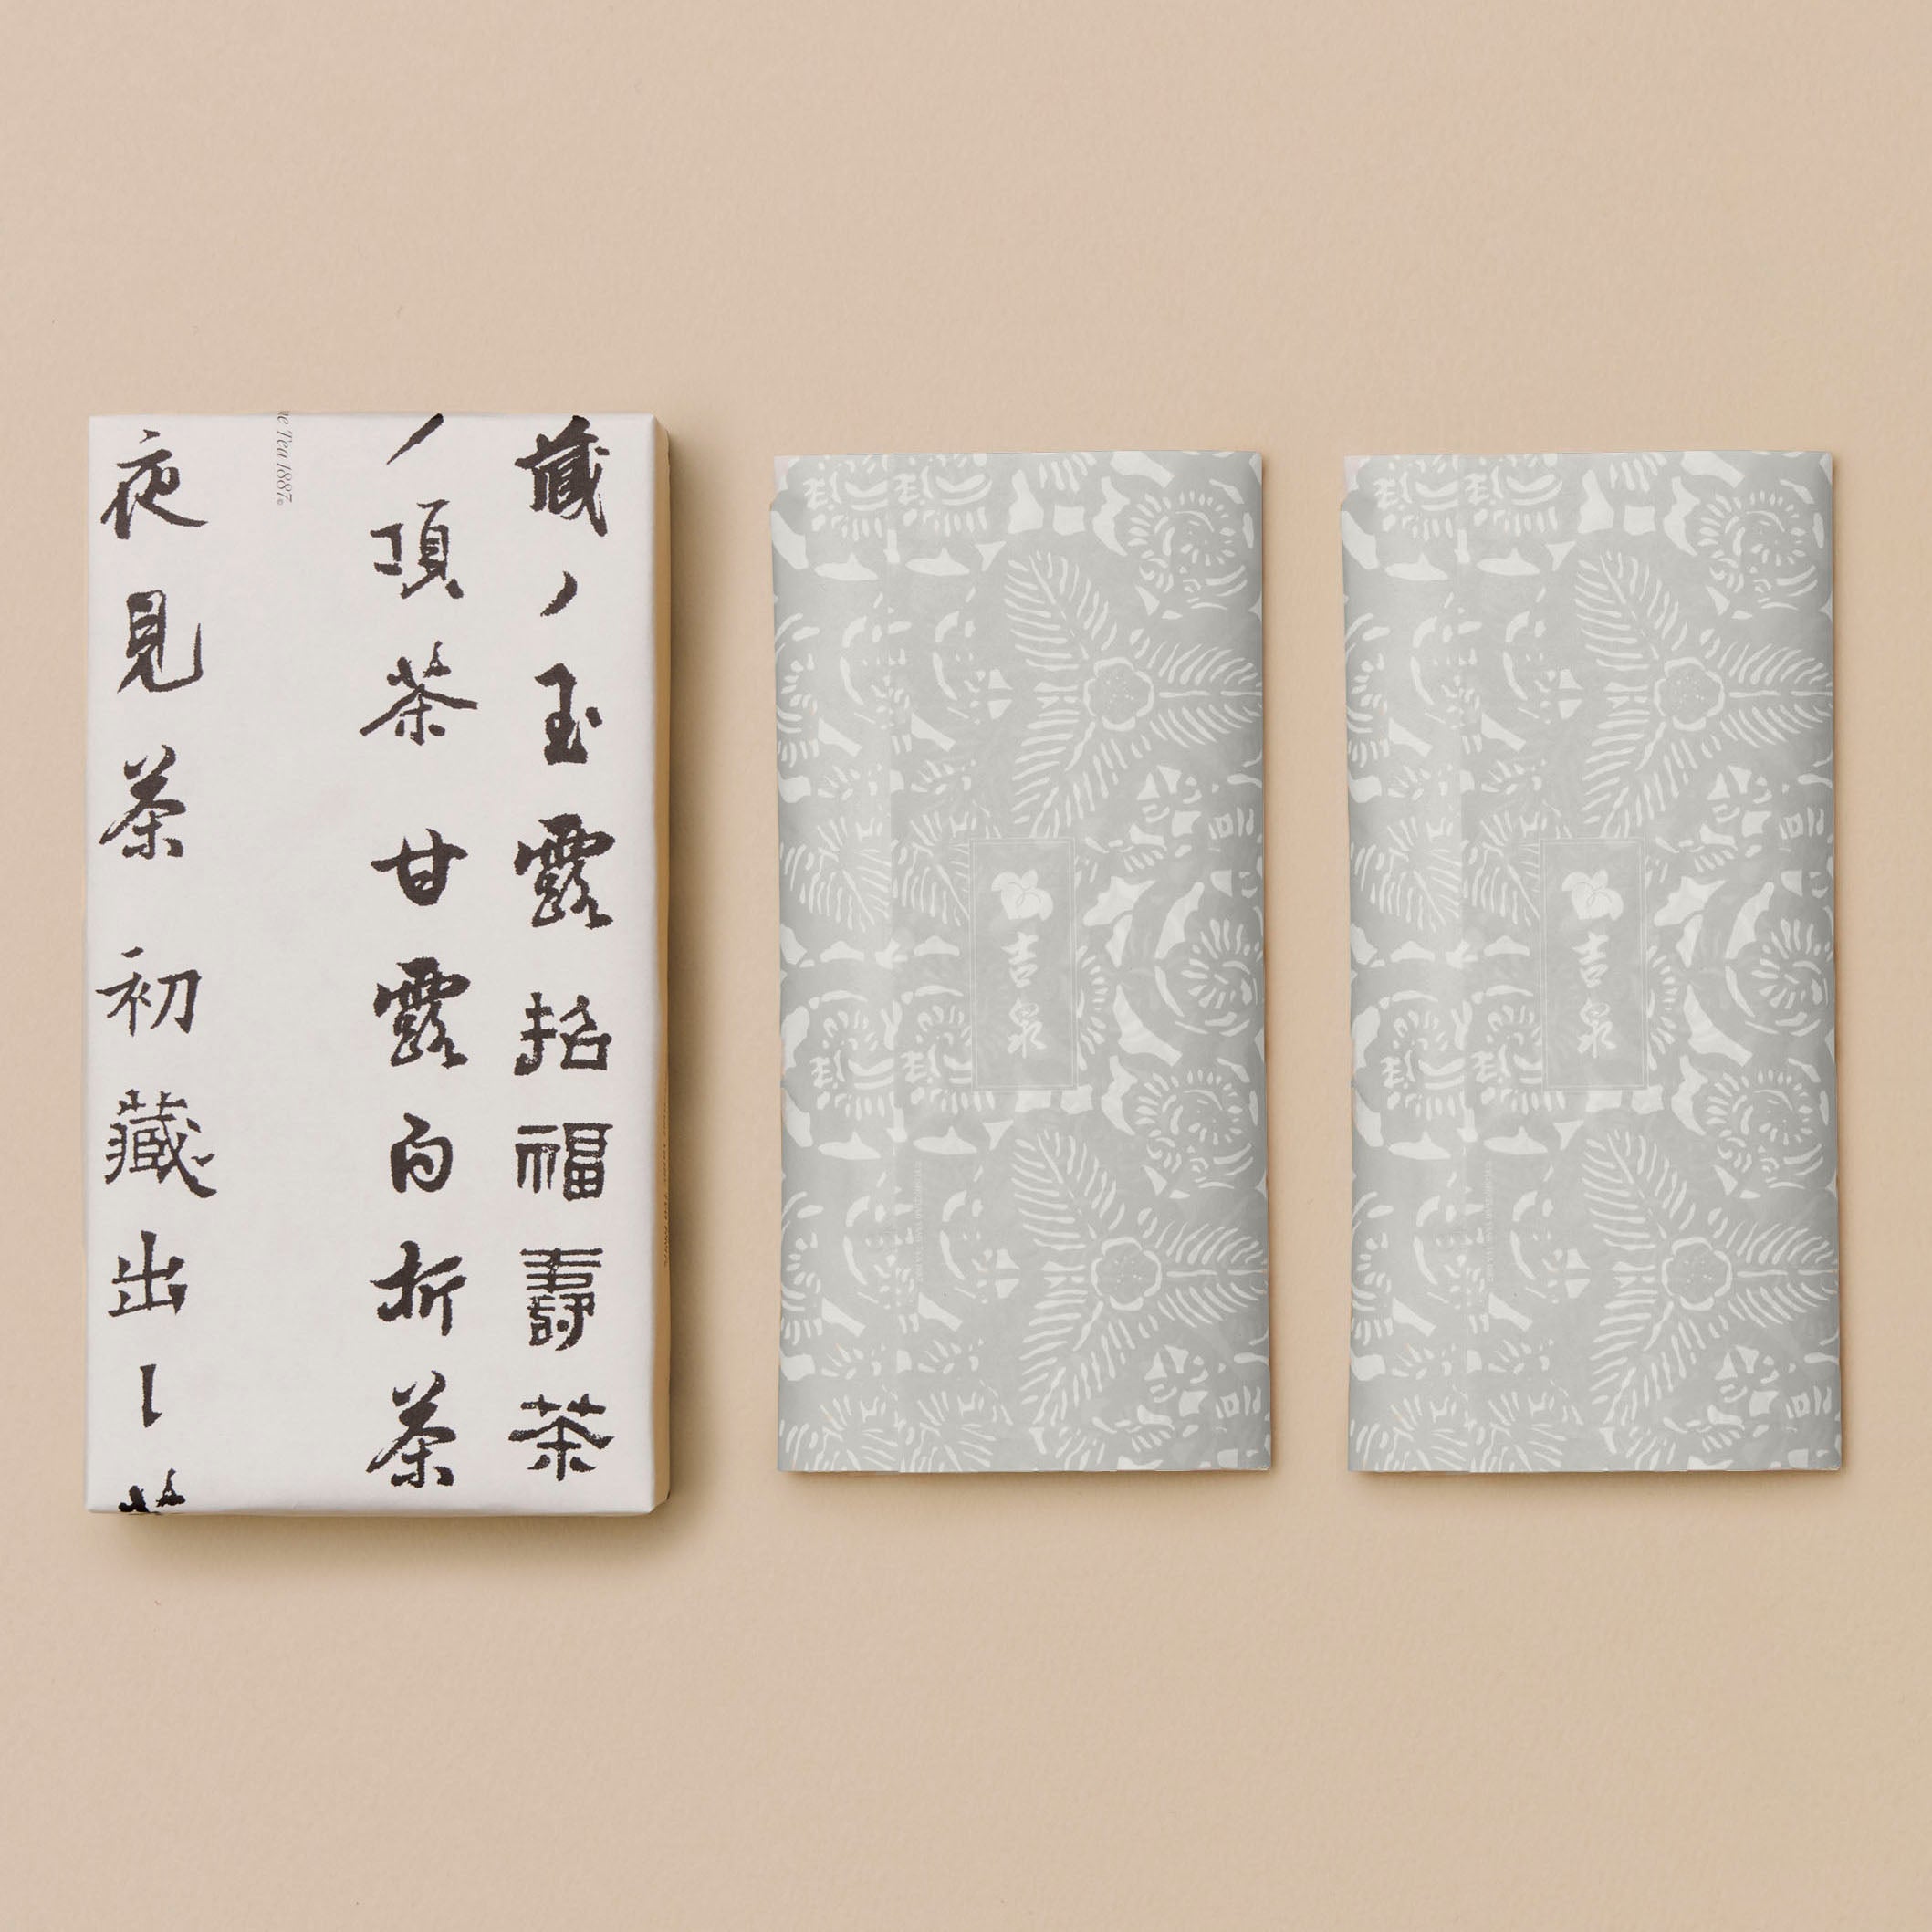 藏ノ玉露招福壽茶
ノ頂茶甘露白折茶
Tea 1887®
夜見茶初藏出し
吉泉
吉泉